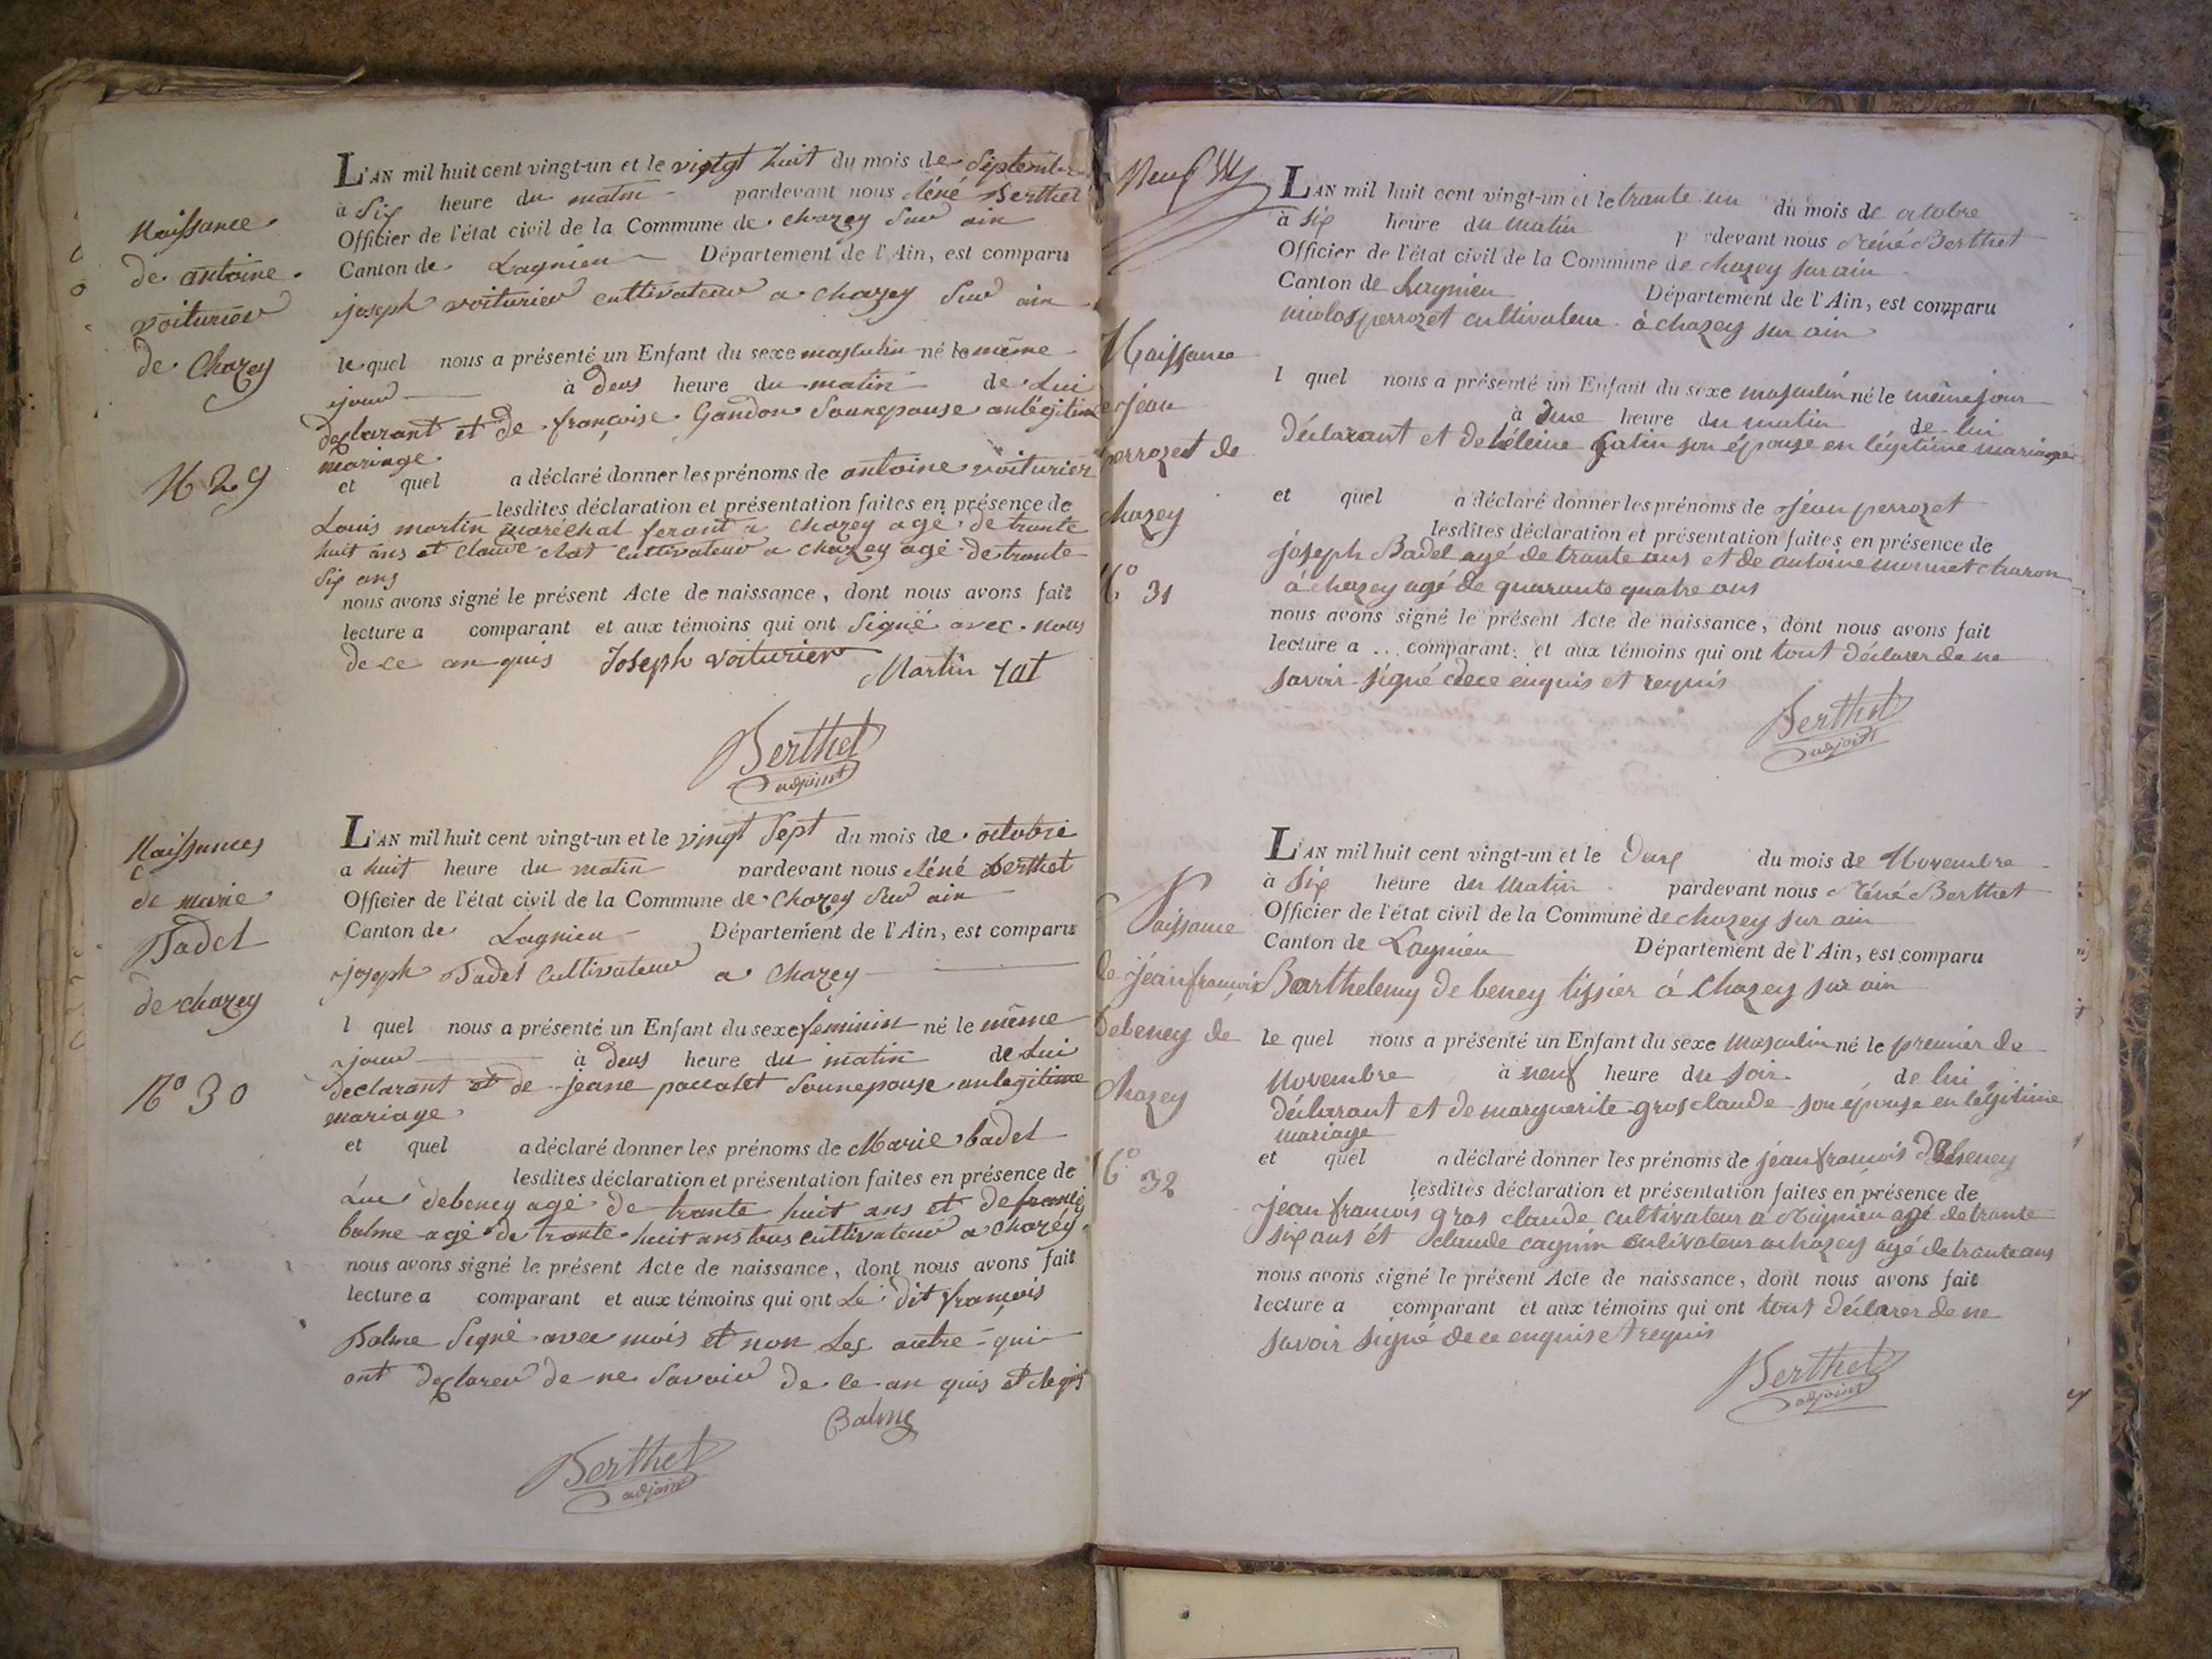 Naissance
de antoine
voiturier
de Chazey
N 29
L'AN mil huit cent vingt-un et le vingt huit du mois de Septembre
à Six heure du matin pardevant nous Réné Berthet
Officier de l'état civil de la Commune de chazey Sur ain
Canton de Lagnieu Département de l'Ain, est comparu
joseph voiturier cultivateur a chazey Sur ain
le quel nous a présenté un Enfant du sexe masculin né le même
jour à deus heure du matin de Lui
declarant et de françoise Gandon Sounepouse anlégitime
mariage
et quel a déclaré donner les prénoms de antoine voiturier
lesdites déclaration et présentation faites en présence de
Louis martin maréchal ferant a chazey agé de trante
huit ans et claude clat cultivateur a chazey agé de trante
Six ans
nous avons signé le présent Acte de naissance, dont nous avons fait
lecture a comparant et aux témoins qui ont Signé avec nous
de ce an quis Joseph voiturier Martin
Berthet
adjoint
Naissances
de marie
Badel
de chazey
N° 30
L'AN mil huit cent vingt-un et le vingt Sept du mois de octobre
a huit heure du matin pardevant nous Réné Berthet
Officier de l'état civil de la Commune de Chazey Sur ain
Canton de Lagnieu Département de l'Ain, est comparu
joseph Badel Cultivateur a Chazey
l quel nous a présenté un Enfant du sexe feminin né le même
jour à deus heure du matin de Lui
declarant et de jeane pacalet Sounepouse anlegitime
mariage
et quel a déclaré donner les prénoms de Marie badel
lesdites déclaration et présentation faites en présence de
Luc debeney agé de trante huit ans et de
balme agé de trante huit ans tous cultivateur a chazey
nous avons signé le présent Acte de naissance, dont nous avons fait
lecture a comparant et aux témoins qui ont Le dit françois
Balme Signé avec mois et non Les autre qui
ont declarer de ne Savoir de ce an quis et
Balme
Berthet
adjoint
Naissance
de jean
perrozet de
chazey
N° 31
L'AN mil huit cent vingt-un et le trante un du mois de octobre
à Six heure du Matin pardevant nous Réné Berthet
Officier de l'état civil de la Commune de chazey sur ain
Canton de Lagnieu Département de l'Ain, est comparu
nicolas perrozet cultivateur à chazey sur ain
l quel nous a présenté un Enfant du sexe masculin né le même jour
à une heure du matin de lui
déclarant et de héleine gatin son épouse en légitime mariage
et quel a déclaré donner les prénoms de jean perrozet
lesdites déclaration et présentation faites en présence de
joseph Badel agé de trante ans et de antoine monnet charon
à chazey agé de quarante quatre ans
nous avons signé le présent Acte de naissance, dont nous avons fait
lecture a comparant et aux témoins qui ont tout déclarer de ne
savoir signé de ce enquis et requis
Berthet
adjoint
Naissance
de jean françois
Debeney de
chazey
N° 32
L'AN mil huit cent vingt-un et le deux du mois de Novembre
à Six heure du Matin pardevant nous Réné Berthet
Officier de l'état civil de la Commune de chazey sur ain
Canton de Lagnieu Département de l'Ain, est comparu
Barthelemy de beney tissier à Chazey sur ain
le quel nous a présenté un Enfant du sexe masculin né le premier de
Novembre à neuf heure du Soir de lui
déclarant et de marguerite gros claude son épouse en légitime
mariage
et quel a déclaré donner les prénoms de jean françois Debeney
lesdites déclaration et présentation faites en présence de
jean françois gros claude cultivateur à agé de trante
six ans et claude cagnin cultivateur a chazey agé de trante ans
nous avons signé le présent Acte de naissance, dont nous avons fait
lecture a comparant et aux témoins qui ont tout déclarer de ne
savoir signé de ce enquis et requis
Berthet
adjoint